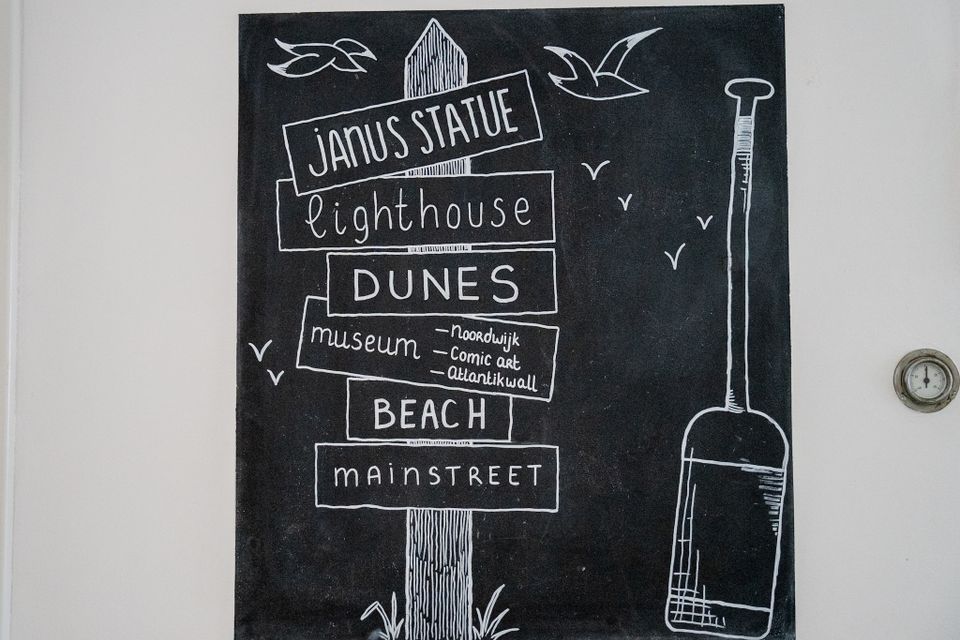 JANUS STATUE
lighthouse
DUNES
museum
— Noordwijk
— Comic art
— Atlantikwall
BEACH
mAinSTREET